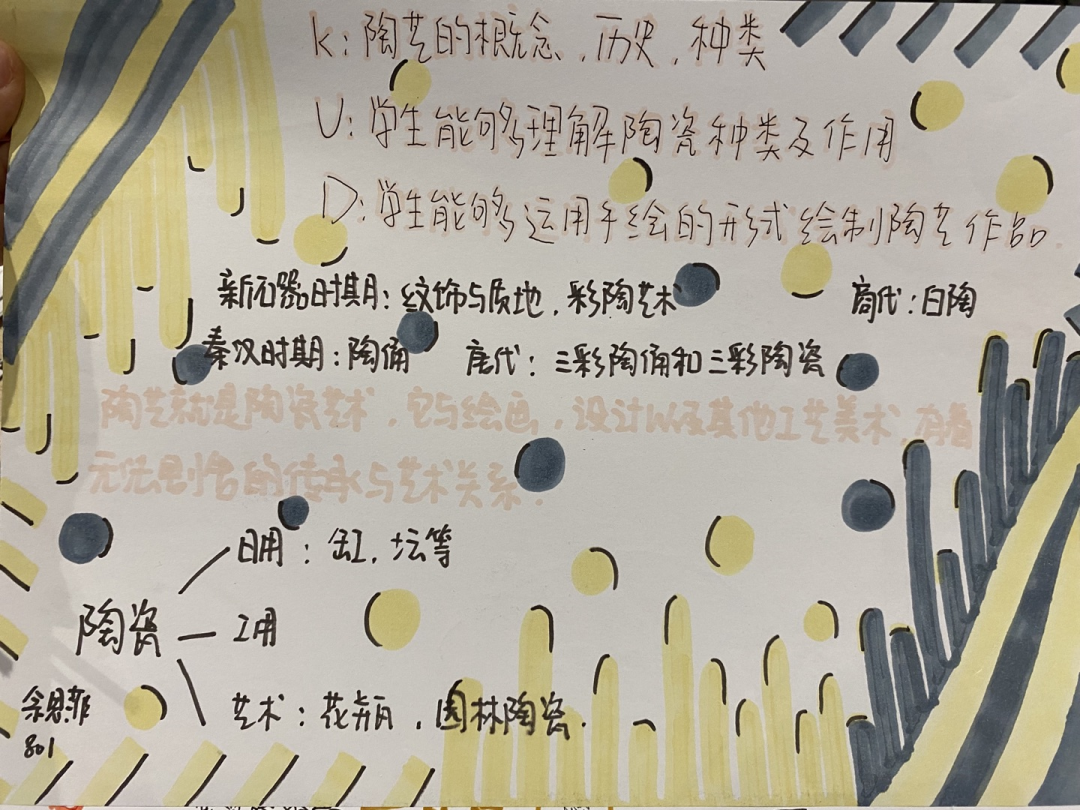 K：陶艺的概念、历史、种类
U：学生能够理解陶瓷种类及作用
D：学生能够运用手绘的形式绘制陶艺作品.
新石器时期：纹饰与质地，彩陶艺术 商代：白陶
秦汉时期：陶俑 唐代：三彩陶俑和三彩陶瓷
陶艺就是陶瓷艺术，它与绘画，设计以及其他工艺美术，有着
无法割舍的传承与艺术关系.
陶瓷
日用：缸，坛等
工用
艺术：花瓶，园林陶瓷.
余思菲
801